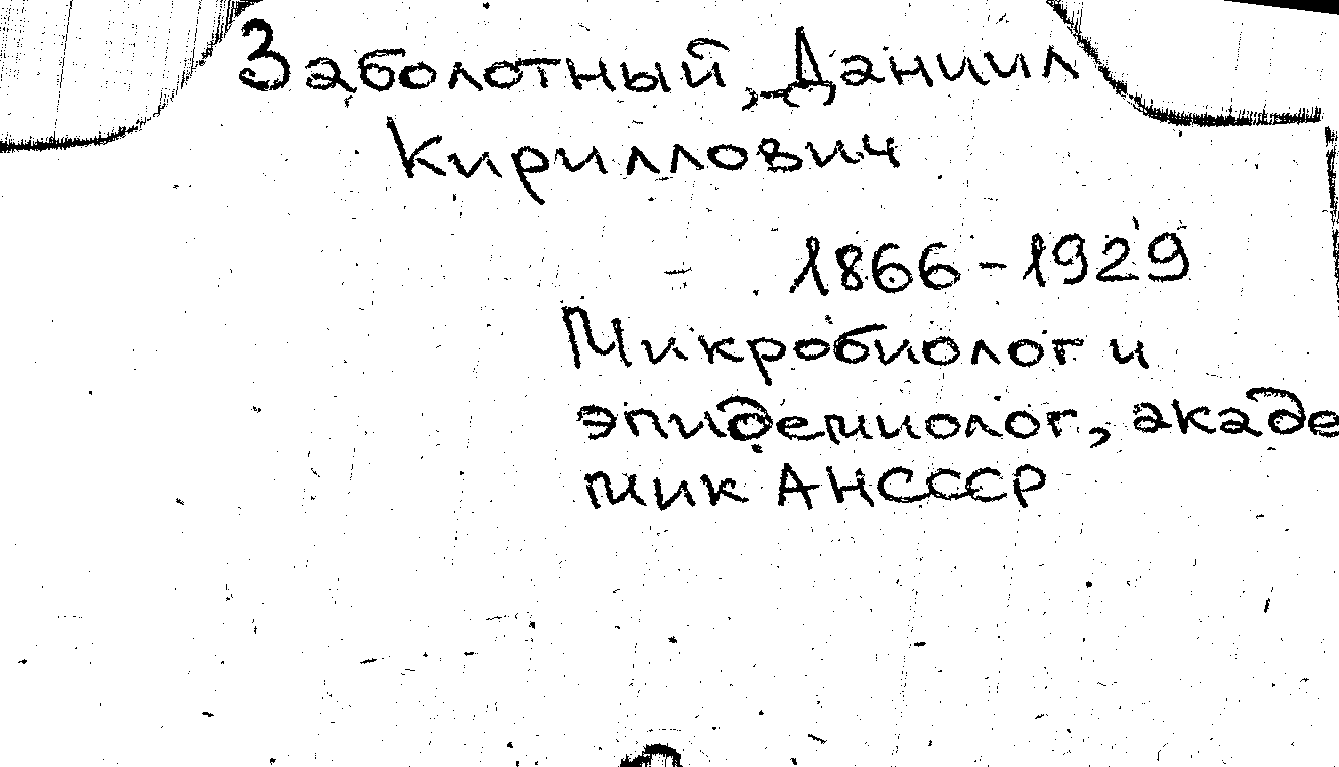 Заболотный, Даниил
Кириллович
1866-1929
Микробиолог и
эпидемиолог, акаде
мик АНСССР